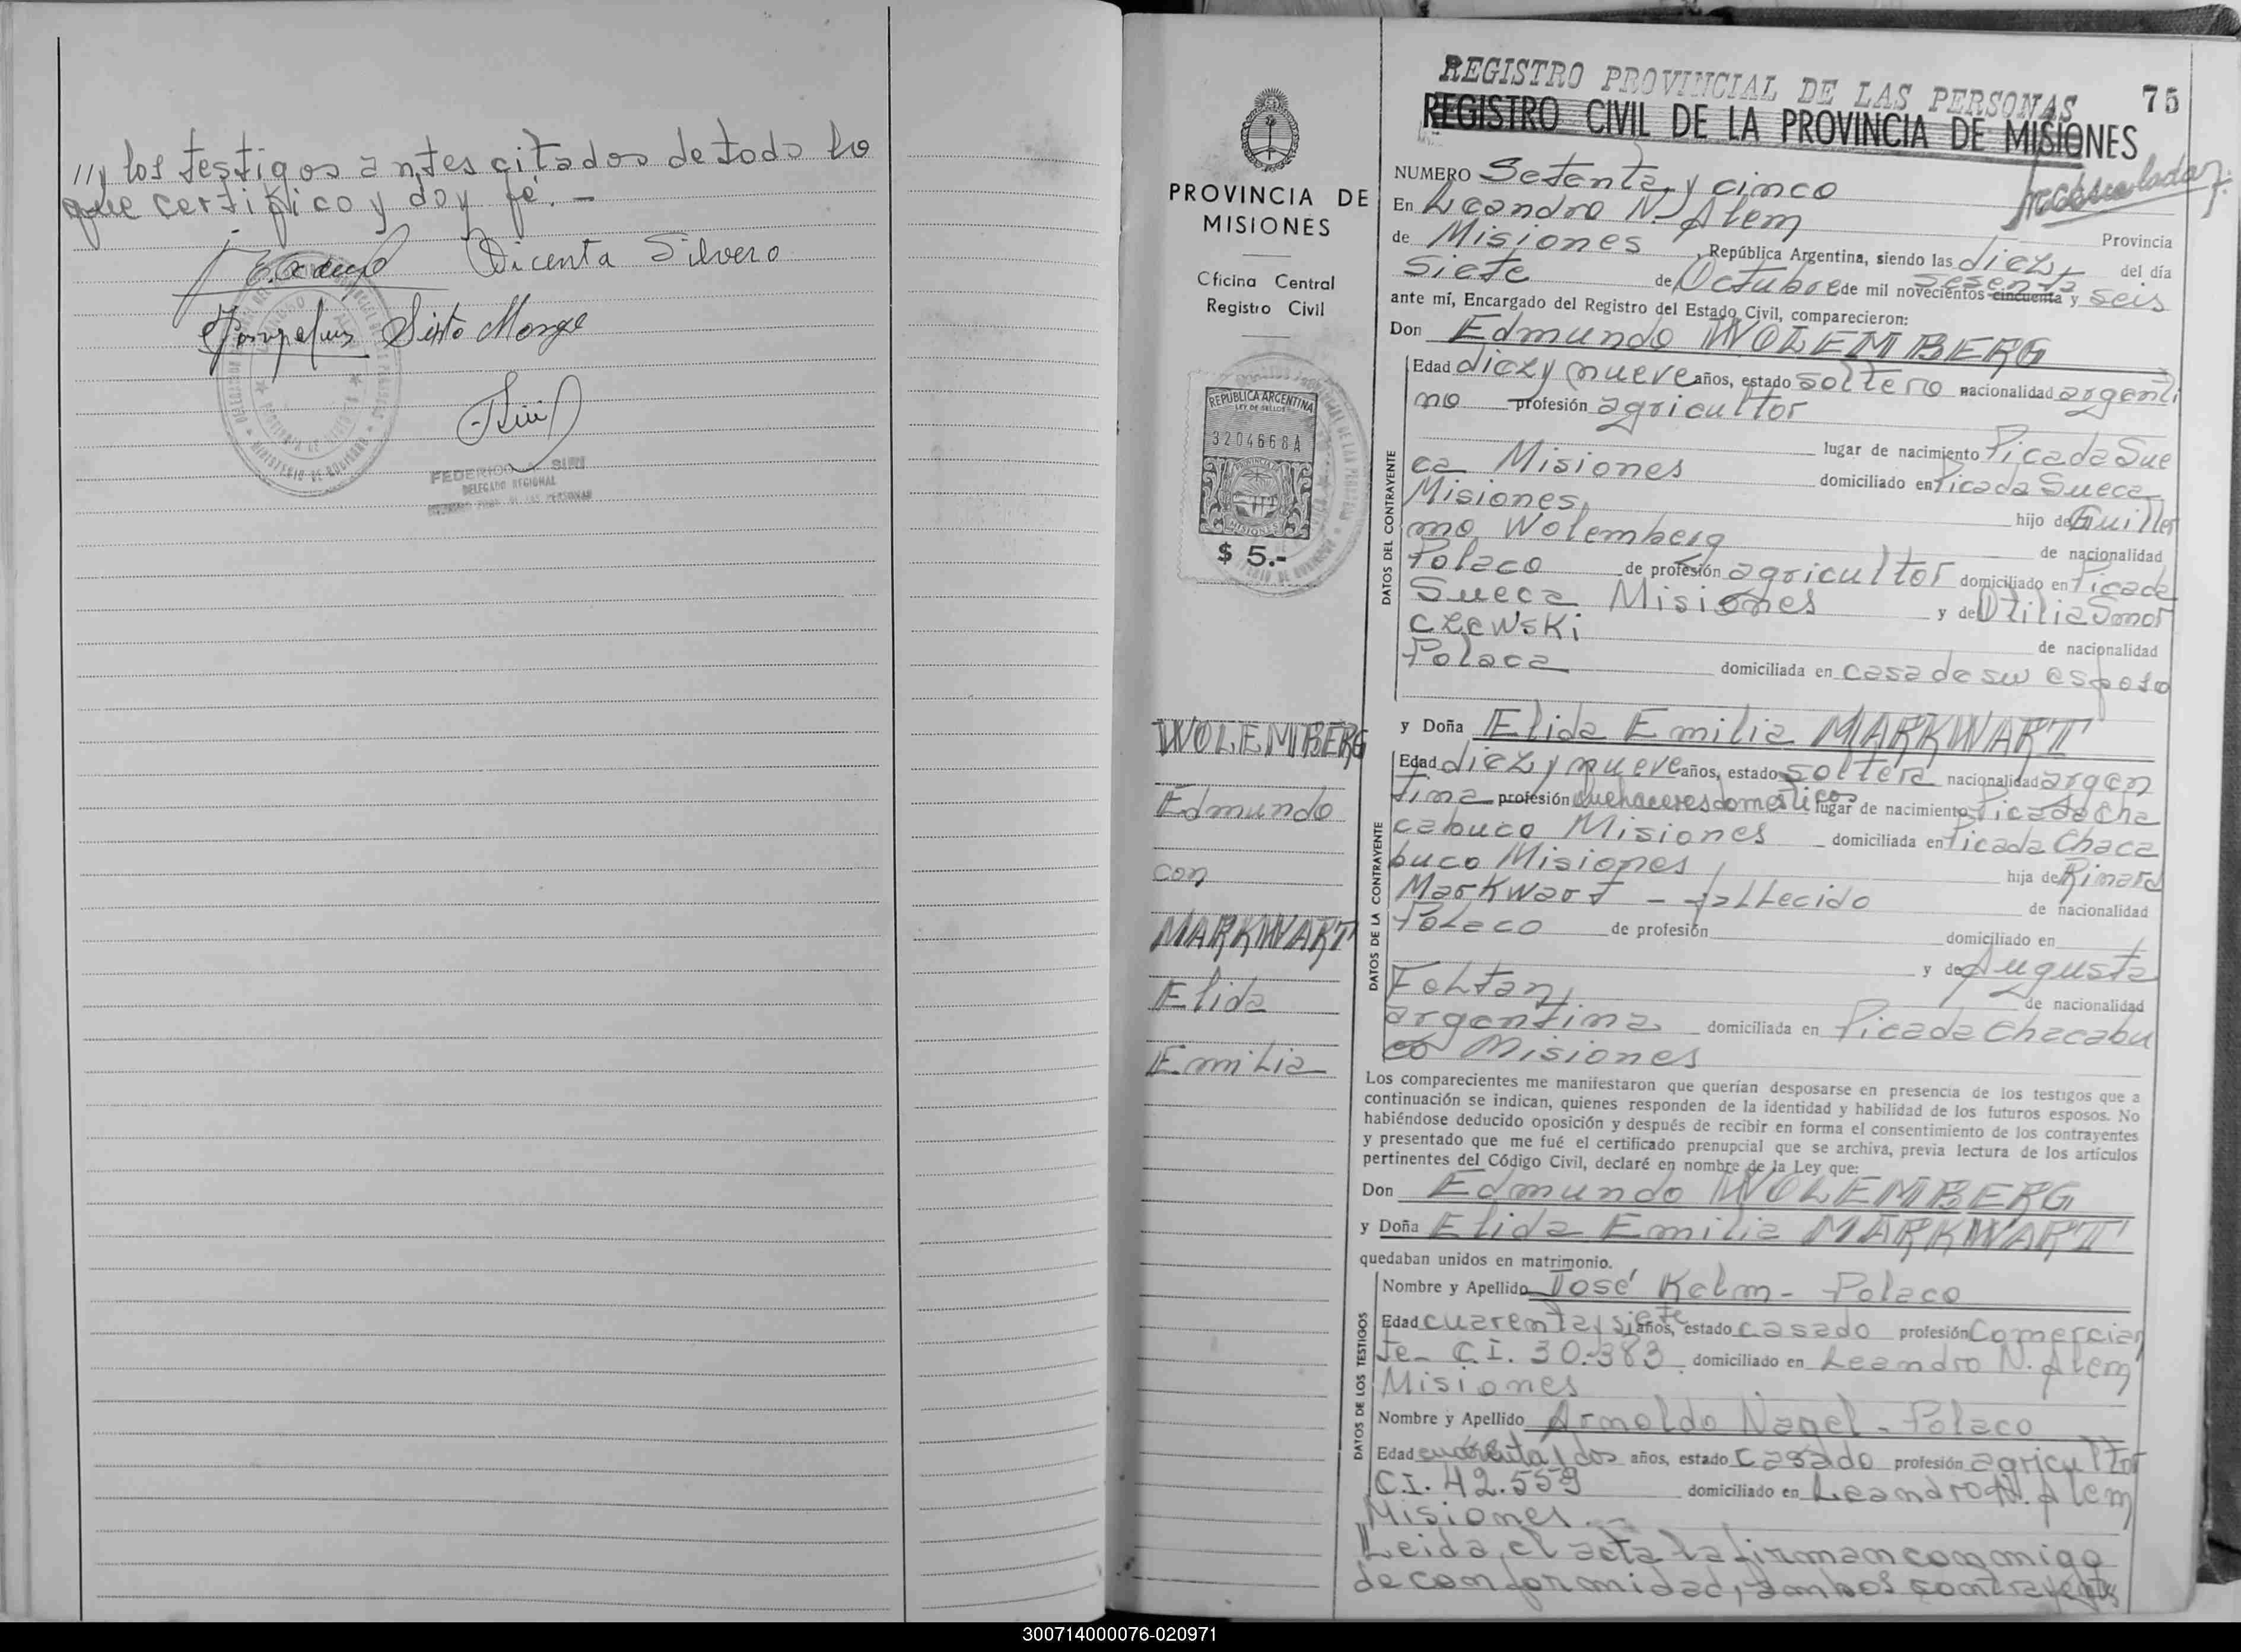 ///y los testigos antes citados de todo lo
que certifico y doy fé. –
Vicenta Silvero
Sixto Monge
FEDERICO SURI
DELEGADO REGIONAL
PROVINCIA DE
MISIONES
Oficina Central
Registro Civil
REPUBLICA ARGENTINA
LEY DE SELLOS
3204668A
MISIONES
$ 5.-
WOLEMBERG
Edmundo
con
MARKWART
Elida
Emilia
REGISTRO PROVINCIAL DE LAS PERSONAS
75
REGISTRO CIVIL DE LA PROVINCIA DE MISIONES
NUMERO Setenta y cinco
En Leandro N. Alem
Provincia
de Misiones, República Argentina, siendo las diez y del día
siete de Octubre de mil novecientos cincuenta sesenta y seis
ante mí, Encargado del Registro del Estado Civil, comparecieron:
Don Edmundo WOLEMBERG
Edad diez y nueve años, estado soltero nacionalidad argenti
no profesión agricultor
lugar de nacimiento Picada Sue
ca Misiones domiciliado en Picada Sueca
Misiones hijo de Guiller
mo Wolemberg de nacionalidad
Polaco de profesión agricultor domiciliado en Picada
Sueca Misiones y de Otilia Sonor
czewski de nacionalidad
Polaca domiciliada en casa de su esposo
DATOS DEL CONTRAYENTE
y Doña Elida Emilia MARKWART
Edad diez y nueve años, estado soltera nacionalidad argen
tina profesión quehaceres domésticos lugar de nacimiento Picada Cha
cabuco Misiones domiciliada en Picada Chaca
buco Misiones hija de Rinard
Markwart – fallecido de nacionalidad
Polaco de profesión domiciliado en
y de Augusta
Fohtan de nacionalidad
argentina domiciliada en Picada Chacabu
co Misiones
DATOS DE LA CONTRAYENTE
Los comparecientes me manifestaron que querían desposarse en presencia de los testigos que a
continuación se indican, quienes responden de la identidad y habilidad de los futuros esposos. No
habiéndose deducido oposición y después de recibir en forma el consentimiento de los contrayentes
y presentado que me fué el certificado prenupcial que se archiva, previa lectura de los artículos
pertinentes del Código Civil, declaré en nombre de la Ley que:
Don Edmundo WOLEMBERG
y Doña Elida Emilia MARKWART
quedaban unidos en matrimonio.
Nombre y Apellido José Kelm – Polaco
Edad cuarenta y siete años, estado casado profesión Comercian
te – C.I. 30.383 domiciliado en Leandro N. Alem
Misiones
Nombre y Apellido Arnoldo Nagel – Polaco
Edad cuarenta y dos años, estado casado profesión agricultor
C.I. 42.559 domiciliado en Leandro N. Alem
Misiones. –
DATOS DE LOS TESTIGOS
Leída el acta la firman conmigo
de conformidad, ambos contrayentes
300714000076-020971